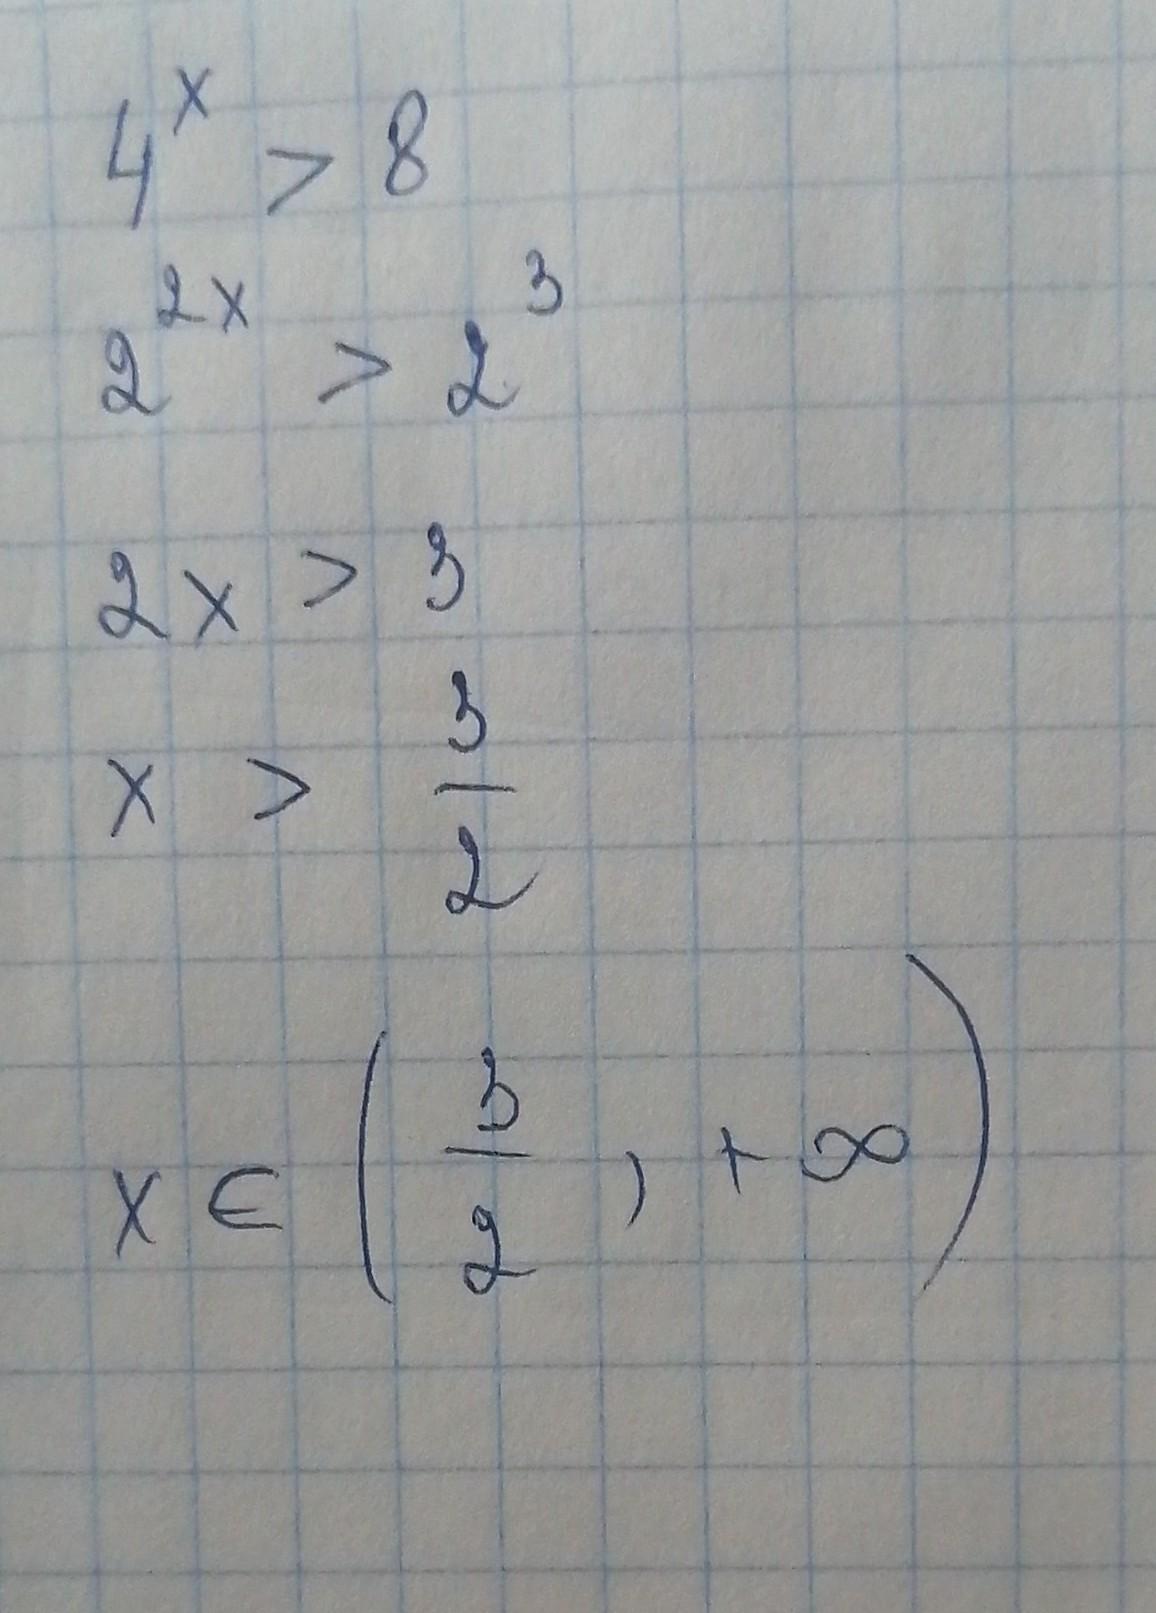 4^x > 8
2^{2x} > 2^3
2x > 3
x > \frac{3}{2}
x ∈ (\frac{3}{2}, +∞)